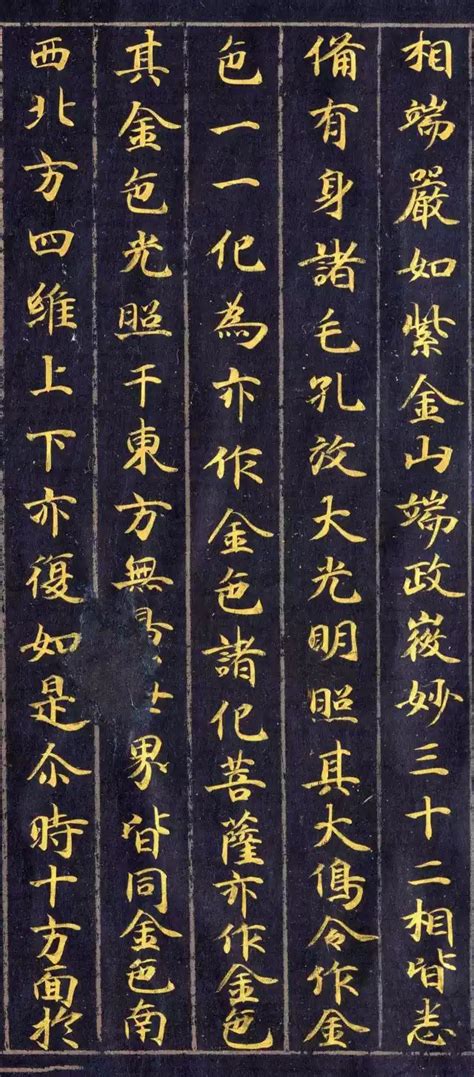 相端嚴如紫金山端政妙三十二相皆悉
備有身諸毛孔放大光明照其大令作金
色一一化為亦作金色諸化菩薩亦作金色
其金色光照于東方無量世界皆同金色南
西北方四維上下亦復如是尒時十方面於